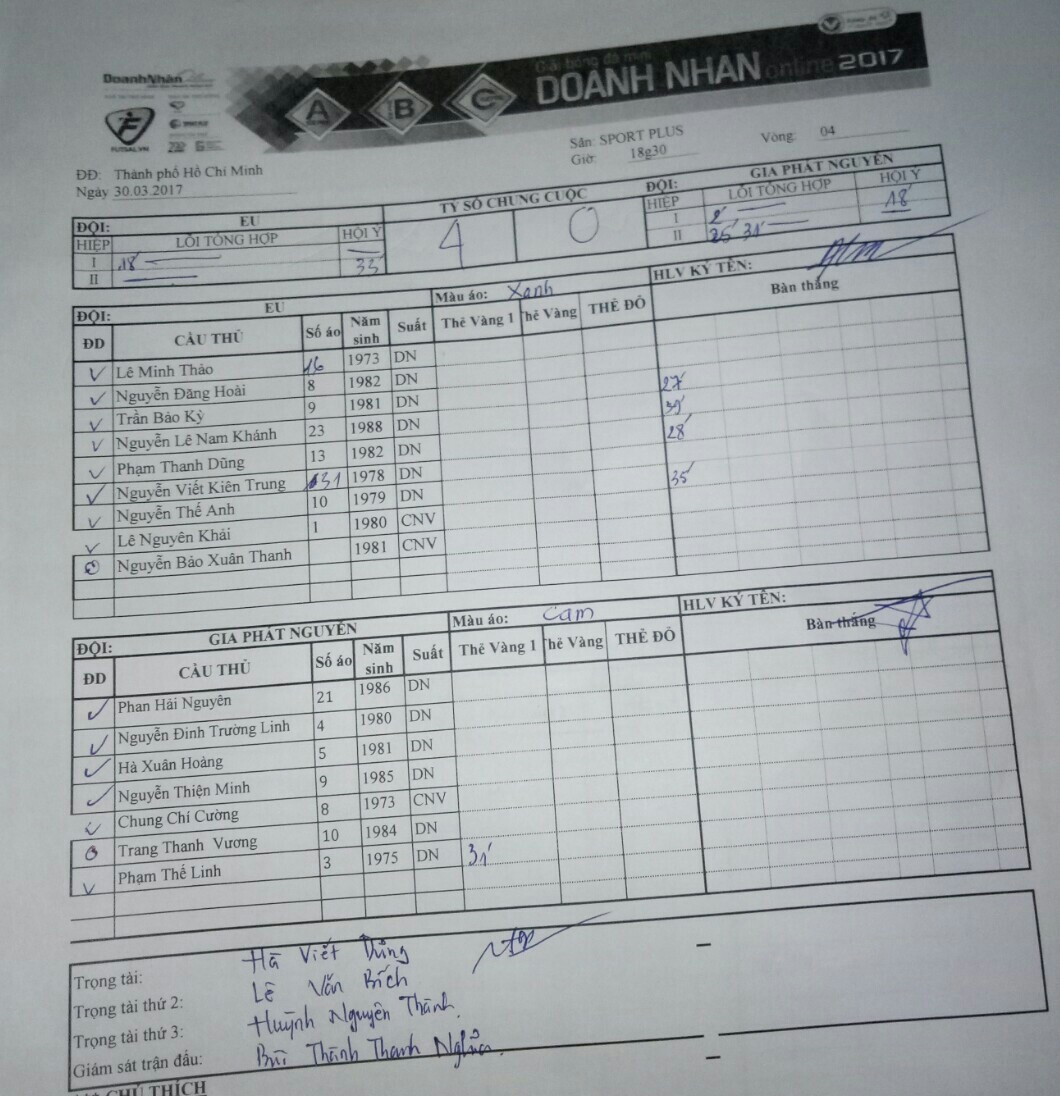 DoanhNhân
FUTSAL.VN
A B C
Giải bóng đá mini
DOANH NHAN online 2017
ĐĐ: Thành phố Hồ Chí Minh
Ngày 30.03.2017
Sân: SPORT PLUS
Giờ: 18g30
Vòng: 04
ĐỘI: EU
HIỆP LỖI TỔNG HỢP HỘI Ý
I 18'
II 33'
TỶ SỐ CHUNG CUỘC
4 0
ĐỘI: GIA PHÁT NGUYÊN
HIỆP LỖI TỔNG HỢP HỘI Ý
I 2' 18'
II 25' 31'
ĐỘI: EU Màu áo: Xanh HLV KÝ TÊN:
ĐD CẦU THỦ Số áo Năm sinh Suất Thẻ Vàng 1 Thẻ Vàng THẺ ĐỎ Bàn thắng
Lê Minh Thảo 16 1973 DN
Nguyễn Đăng Hoài 8 1982 DN 27'
Trần Bảo Kỳ 9 1981 DN 39'
Nguyễn Lê Nam Khánh 23 1988 DN 28'
Phạm Thanh Dũng 13 1982 DN
Nguyễn Viết Kiên Trung 31 1978 DN 35'
Nguyễn Thế Anh 10 1979 DN
Lê Nguyên Khải 1 1980 CNV
Nguyễn Bảo Xuân Thanh 1981 CNV
ĐỘI: GIA PHÁT NGUYÊN Màu áo: Cam HLV KÝ TÊN:
ĐD CẦU THỦ Số áo Năm sinh Suất Thẻ Vàng 1 Thẻ Vàng THẺ ĐỎ Bàn thắng
Phan Hải Nguyên 21 1986 DN
Nguyễn Đình Trường Linh 4 1980 DN
Hà Xuân Hoàng 5 1981 DN
Nguyễn Thiện Minh 9 1985 DN
Chung Chí Cường 8 1973 CNV
Trang Thanh Vương 10 1984 DN
Phạm Thế Linh 3 1975 DN 31'
Trọng tài: Hà Viết Dũng
Trọng tài thứ 2: Lê Văn Bích
Trọng tài thứ 3: Huỳnh Nguyên Thành
Giám sát trận đấu: Bùi Thành Thanh Nghĩa
CHÚ THÍCH